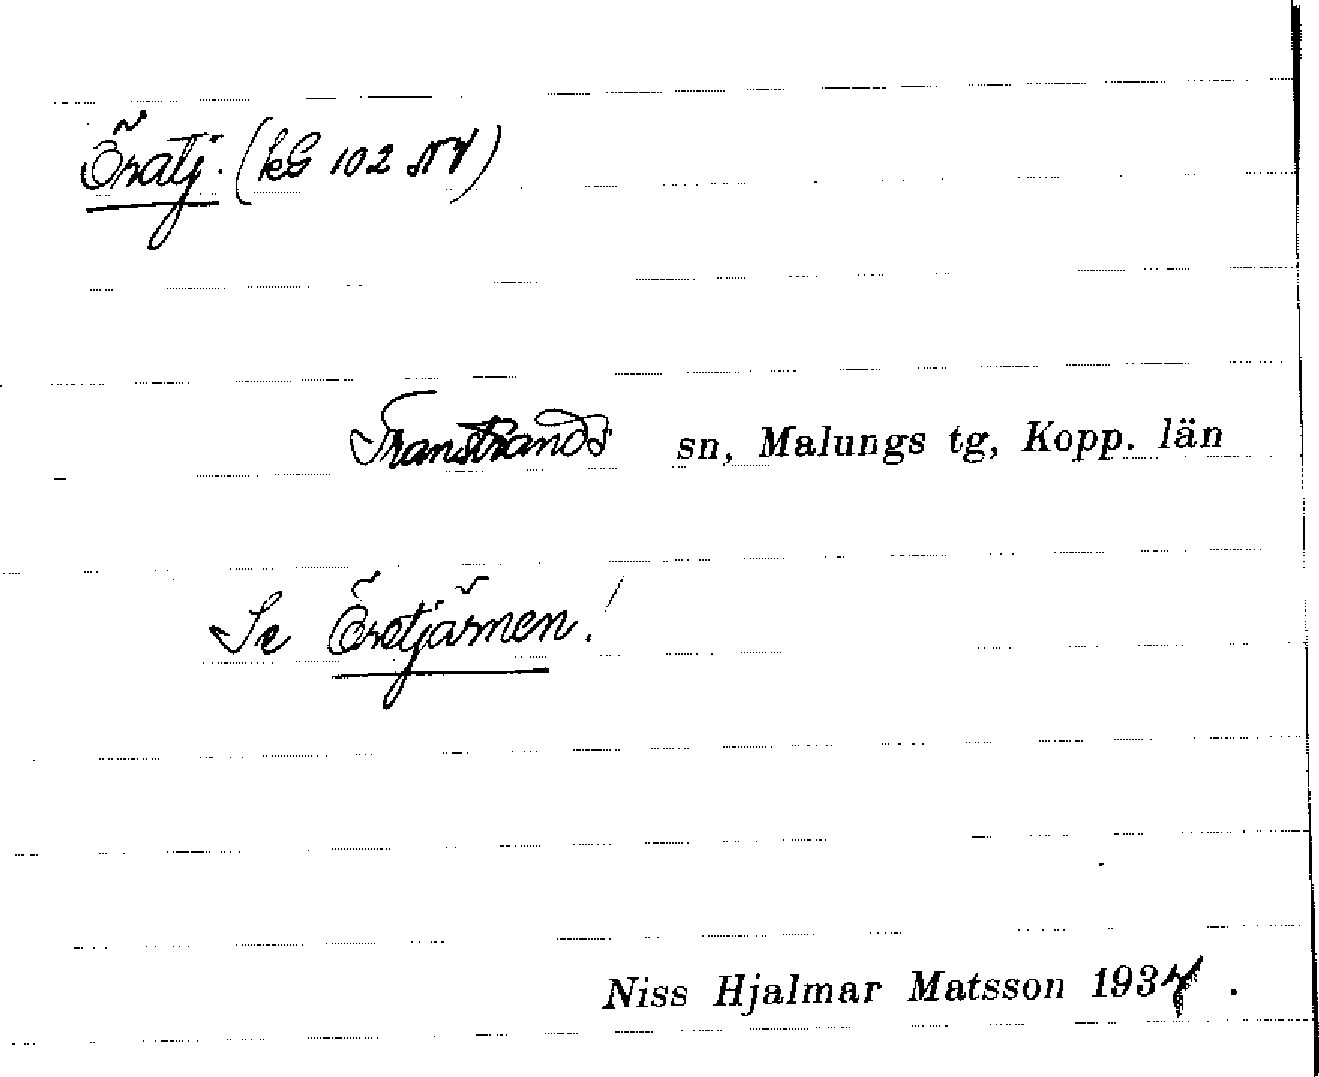 Öratj. (kG 102 NV)
Transtrands sn, Malungs tg, Kopp. län
Se Öretjärnen!
Niss Hjalmar Matsson 1937.